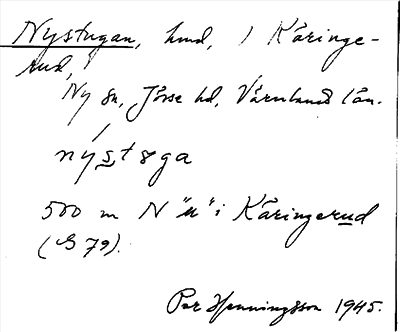 Nystugan, hmd, i Käringe-
rud,
Ny sn, Jösse hd, Värmlands län.
nýstøga
500 m N "u" i Käringerud
(G 79).
Per Henningsson 1945.